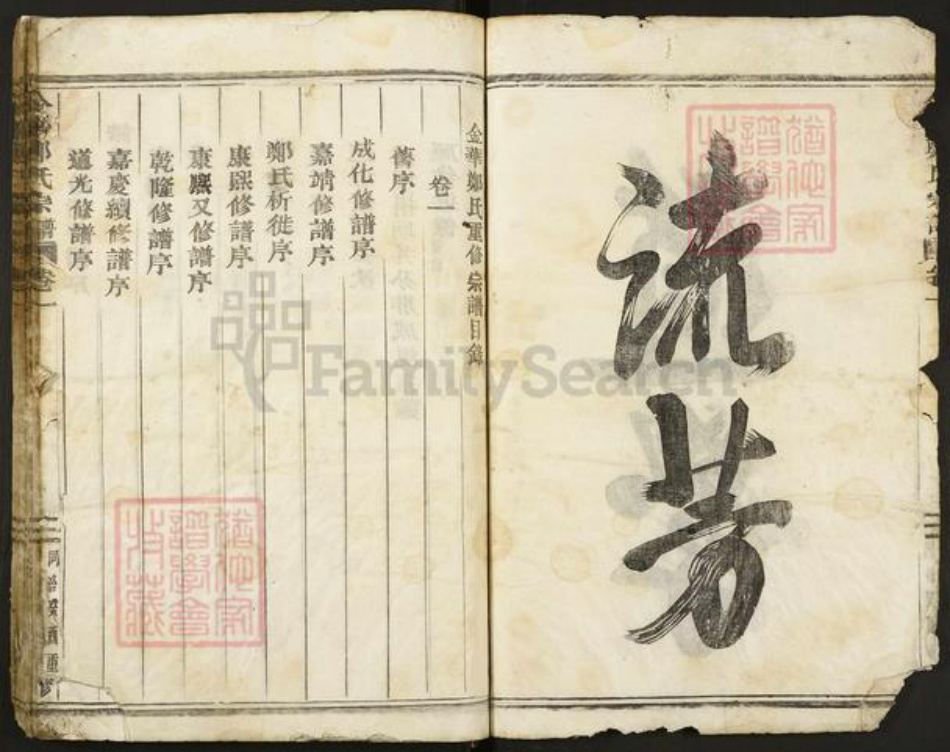 流芳
金華鄭氏重修宗譜目錄
卷一
舊序
成化修譜序
嘉靖修譜序
鄭氏析徙序
康熙修譜序
康熙又修譜序
乾隆修譜序
嘉慶續修譜序
道光修譜序
鄭氏宗譜 卷一
同治癸酉重修
猶他家譜學會收藏
猶他家譜學會收藏
FamilySearch